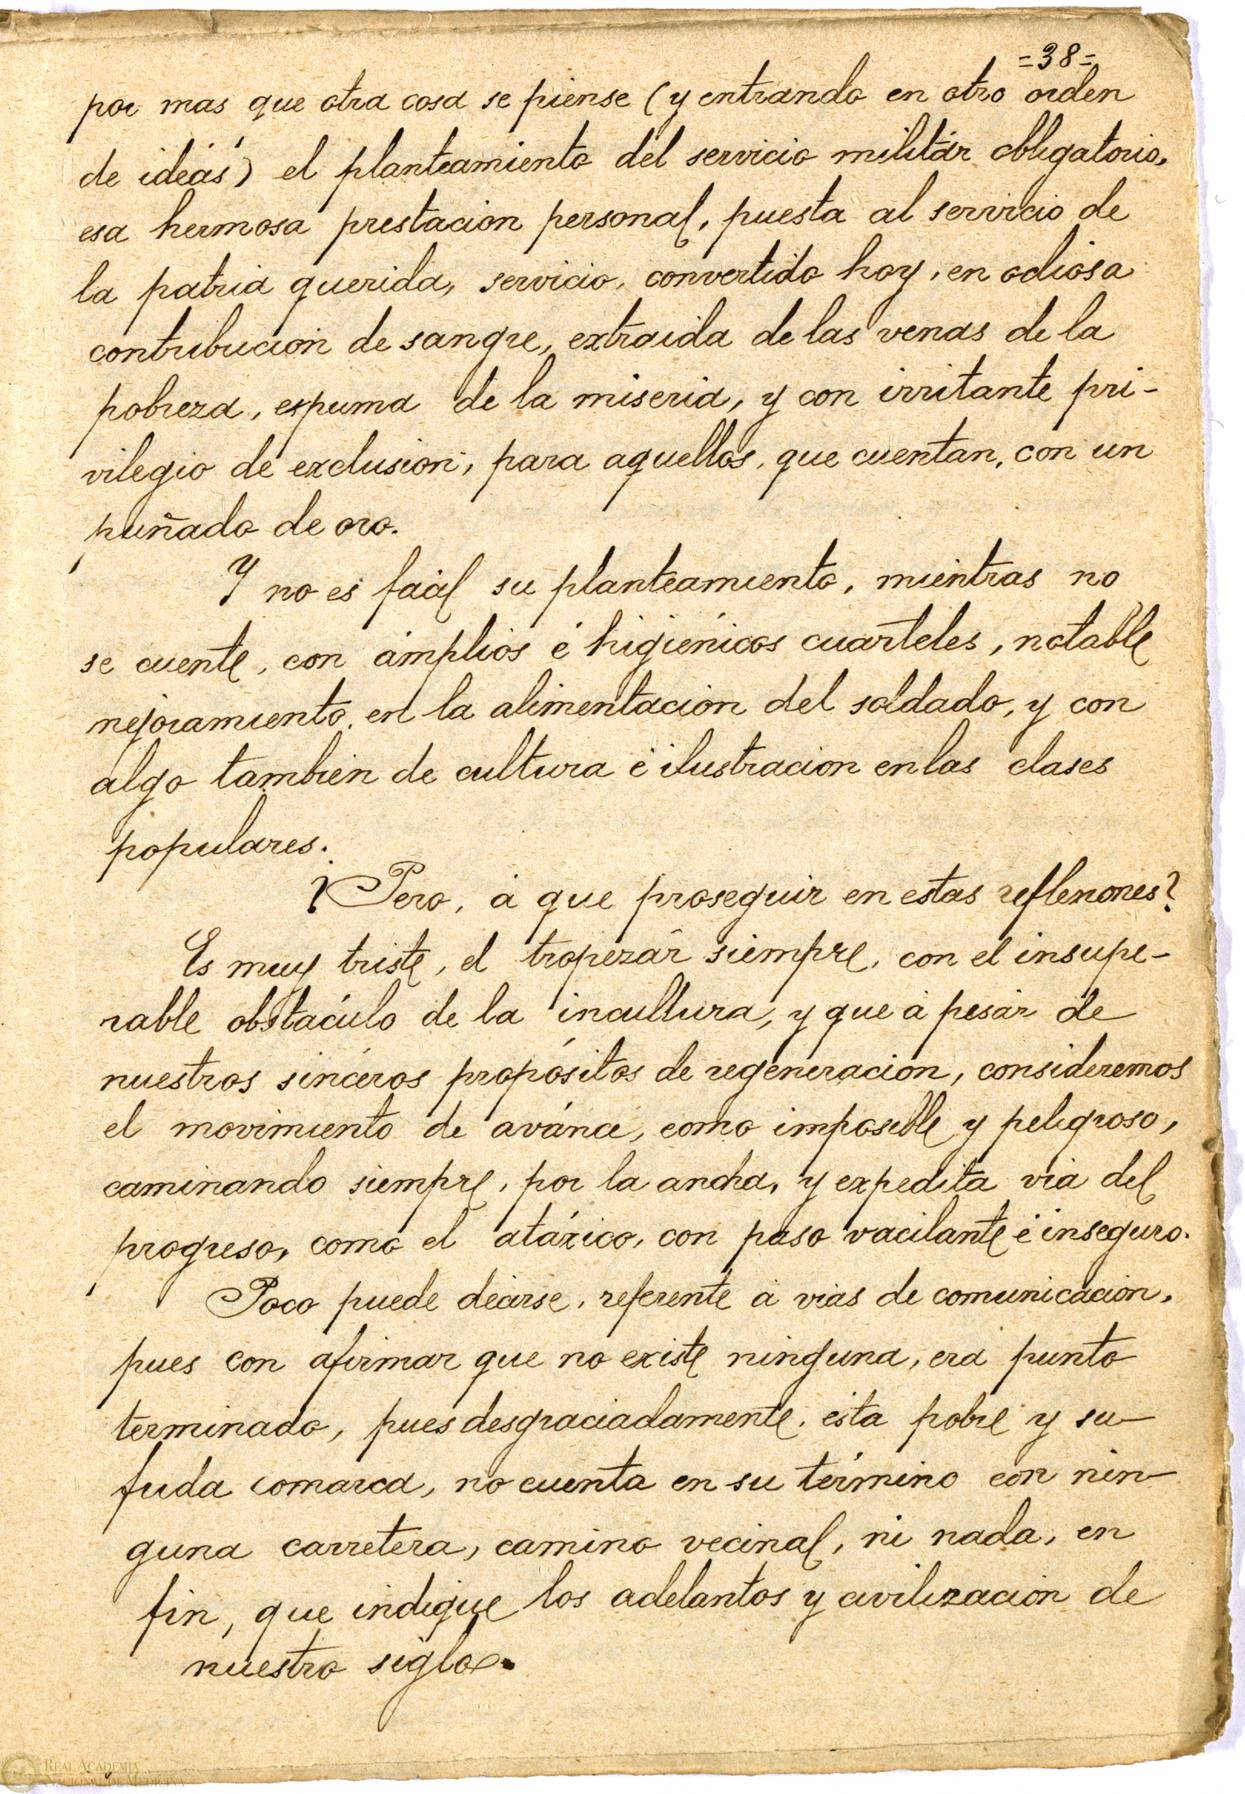 =38=
por mas que otra cosa se piense (y entrando en otro orden
de ideás) el planteamiento del servicio militár obligatorio,
esa hermosa prestación personal, puesta al servicio de
la patria querida, servicio, convertido hoy, en odiosa
contribución de sangre, extraida de las venas de la
pobreza, espuma de la miseria, y con irritante pri-
vilegio de exclusión, para aquellos, que cuentan, con un
puñado de oro.
Y no es facil su planteamiento, mientras no
se cuente, con ámplios é higiénicos cuarteles, notable
mejoramiento, en la alimentación del soldado, y con
algo también de cultura é ilustración en las clases
populares.
¿Pero, á que proseguir en estas reflexiones?
Es muy triste, el tropezár siempre, con el insupe-
rable obstáculo de la incultura, y que á pesár de
nuestros sincéros propósitos de regeneración, consideremos
el movimiento de avánce, como imposible y peligroso,
caminando siempre, por la ancha, y expedita via del
progreso, como el atáxico, con paso vacilante é inseguro.
Poco puede decirse, referente á vias de comunicación,
pues con afirmar que no existe ninguna, era punto
terminado, pues desgraciadamente, esta pobre y su-
fuda comarca, no cuenta en su término con nin-
guna carretera, camino vecinal, ni nada, en
fin, que indique los adelantos y civilización de
nuestro siglo.
REAL ACADEMIA
NACIONAL DE MEDICINA